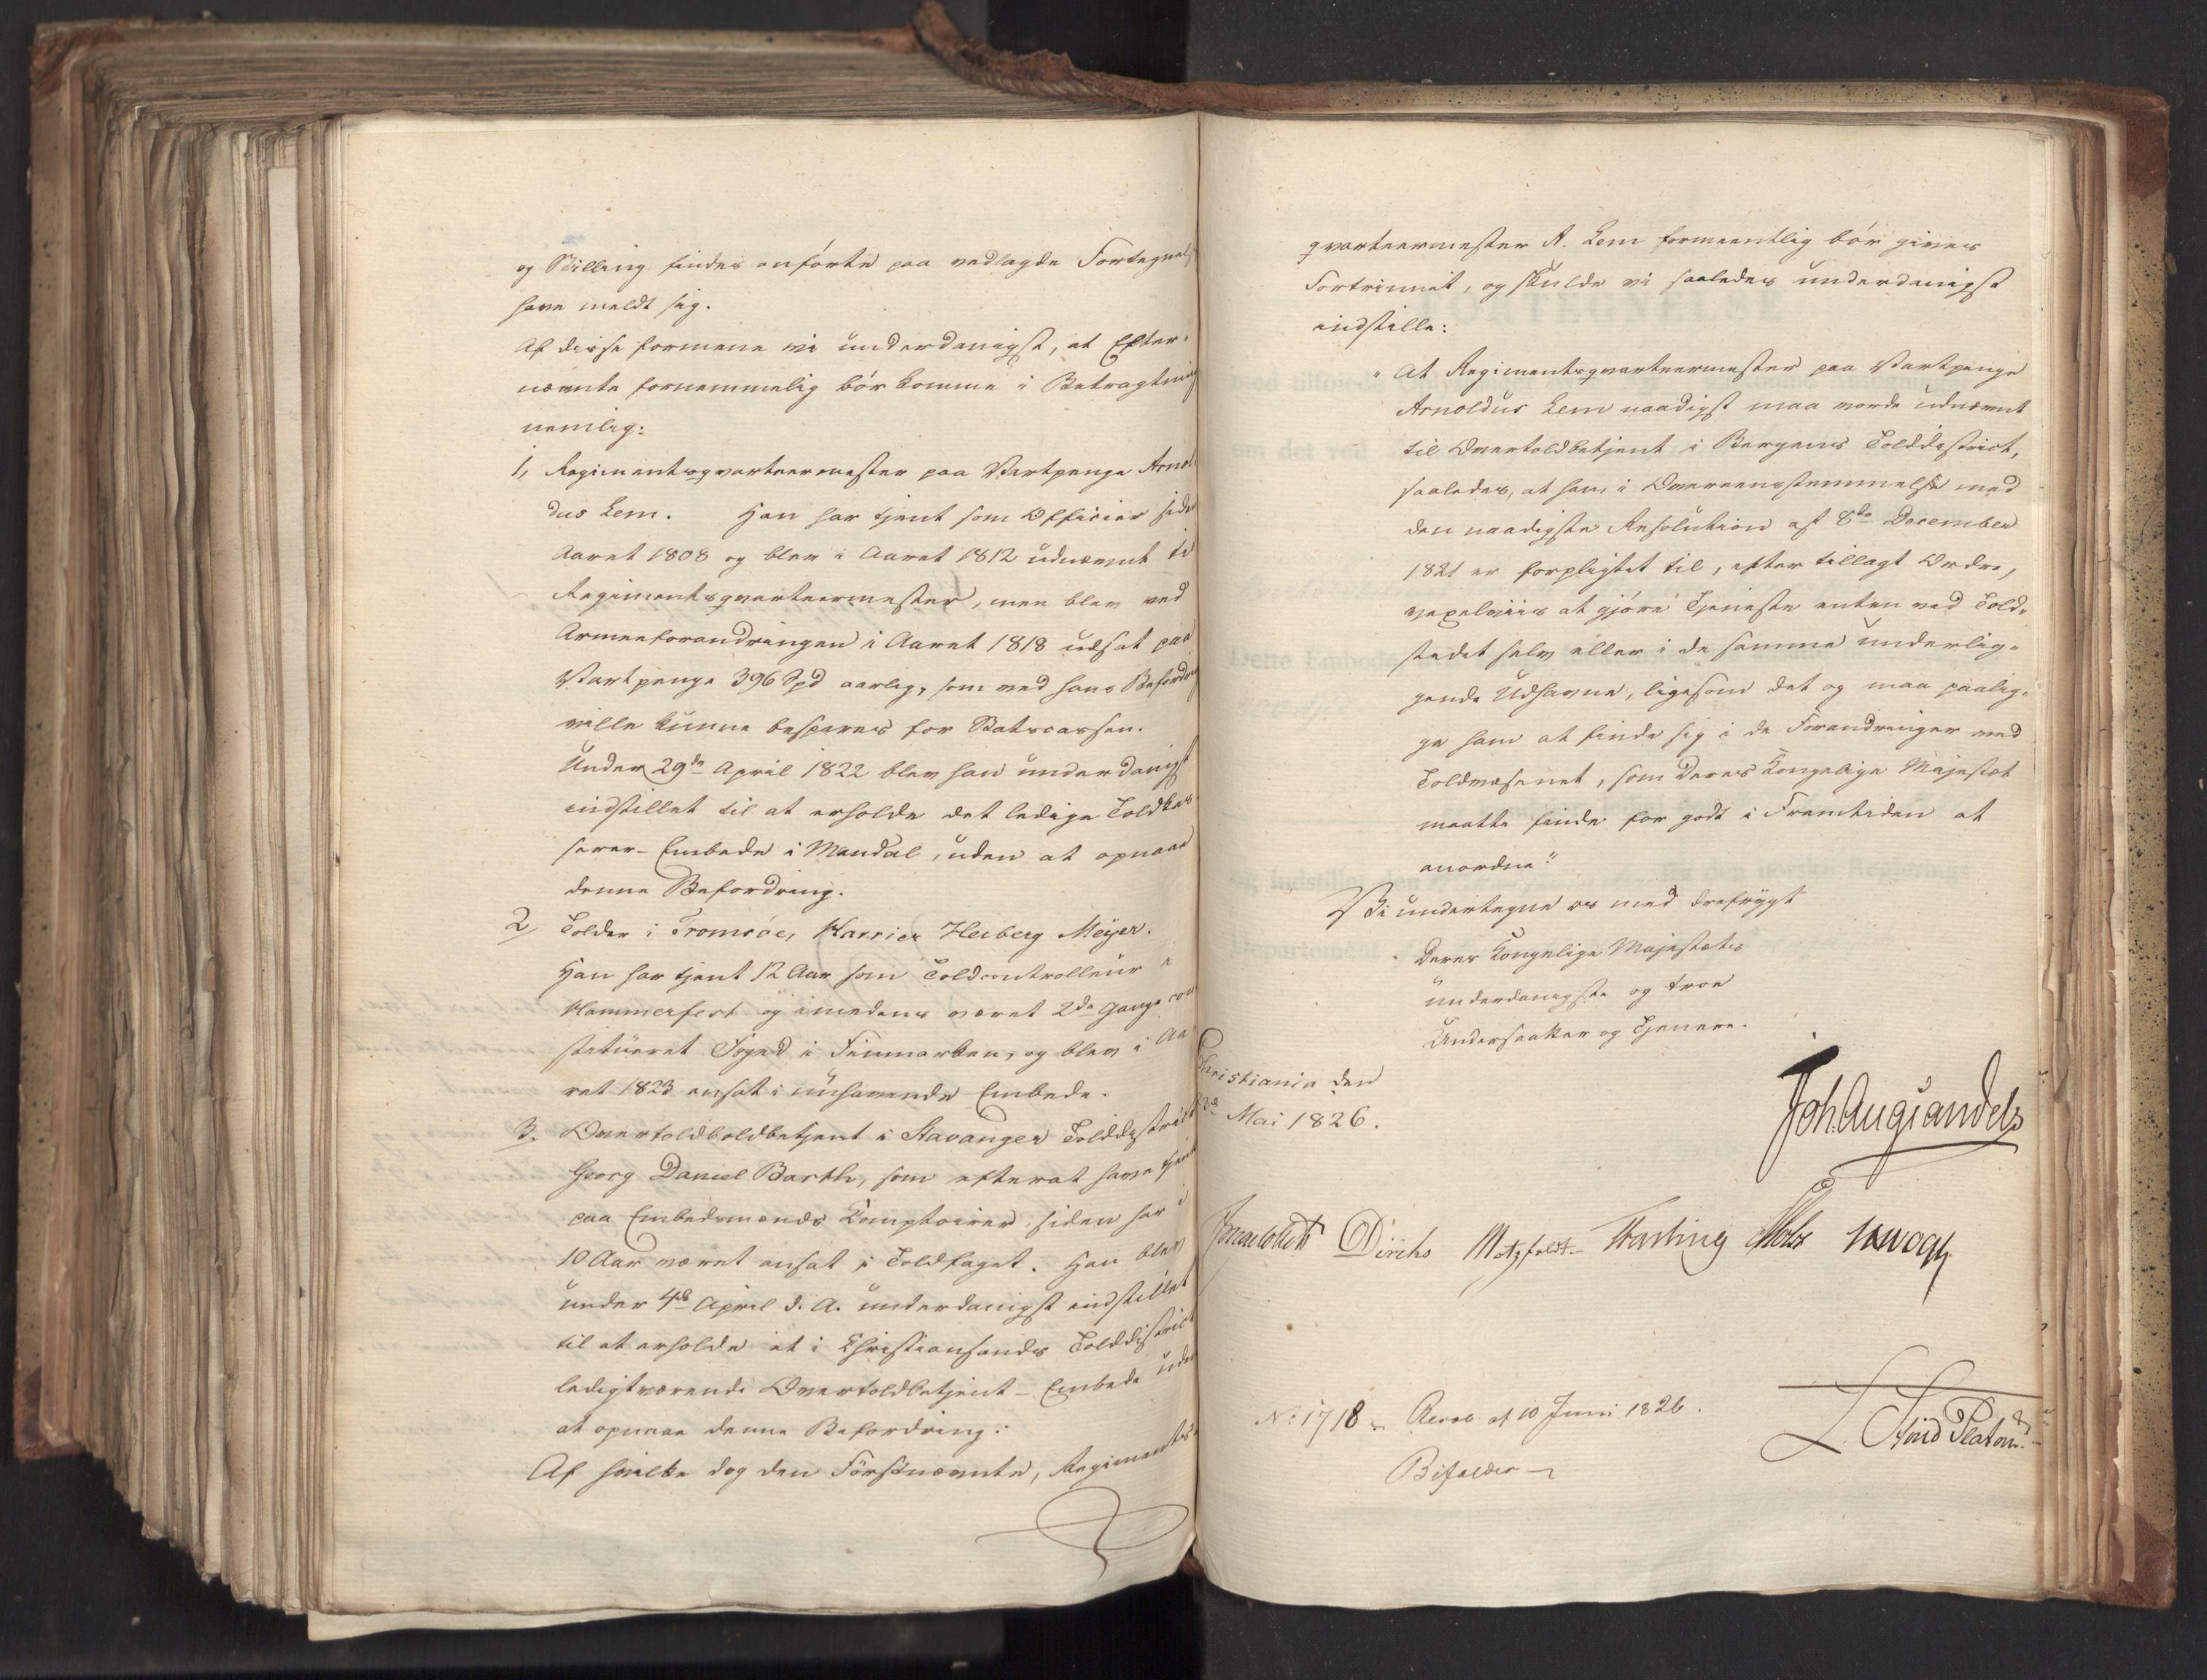 og Stilling findes anførte paa vedlagde Fortegnelse
have meldt sig.
Af disse formene vi underdanigst, at Efter-
nævnte fornemmelig bør komme i Betragtning
nemlig:
1, Regimentsqvarteermester paa Vartpenge Arnol-
dus Lem. Han har tjent som Officier siden
Aaret 1808 og blev i Aaret 1812 udnævnt til
Regimentsqvarteermester, men blev ved
Armeeforandringen i Aaret 1818 udsat paa
Vartpenge 396 Spd aarlig, som ved hans Befordring
ville kunne bespares for Statscassen.
Under 29de April 1822 blev han underdanigst
indstillet til at erholde det ledige Toldkas-
serer-Embede i Mandal, uden at opnaae
denne Befordring.
2, Tolder i Tromsøe, Heiberg Meyer.
Han har tjent 12 Aar som Toldcontrolleur i
Hammerfest og imedens været 2de Gange con-
stitueret Foged i Finmarken, og blev i Aa-
ret 1823 ansat i Embede.
3. Overtoldboldbetjent i Stavanger Tolddistrict
Georg Daniel Barth, som efterat have tjent
paa Embedsmænds Comptoirer, siden har i
10 Aar været ansat i Toldfaget. Han blev
under 4de April d. A. underdanigst indstillet
til at erholde et i Christiansands Tolddistrict
ledigtværende Overtoldbetjent-Embede uden
at opnaae denne Befordring.
Af hvilke dog den Førstnævnte, Regiments-
qvarteermester A. Lem formeentlig bør gives
Fortrinnet, og skulde vi saaledes underdanigst
indstille:
"At Regimentsqvarteermester paa Vartpenge
Arnoldus Lem naadigst maa vorde udnævnt
til Overtoldbetjent i Bergens Tolddistrict,
saaledes, at han, i Overeensstemmelse med
den naadigste Resolution af 8de December
1821 er forpligtet til, efter tillagt Ordre,
vexelviis at gjøre Tjeneste enten ved Told-
stedet selv eller i de samme underlig-
gende Udhavne, ligesom det og maa paalig-
ge ham at finde sig i de Forandringer ved
Toldvæsenet, som Deres Kongelige Majestæt
maatte finde for godt i Fremtiden at
anordne."
Vi undertegne os med Ærefrygt
Deres Kongelige Majestæts
underdanigste og troe
Undersaatter og Tjenere.
Christiania den
Mai 1826.
Joh. Aug. Sandels
Collett Diriks Motzfeldt Fasting Holst Krogh
No 1718 Resol. af 10 Juni 1826.
Bifaldes
L. Stoud Platou